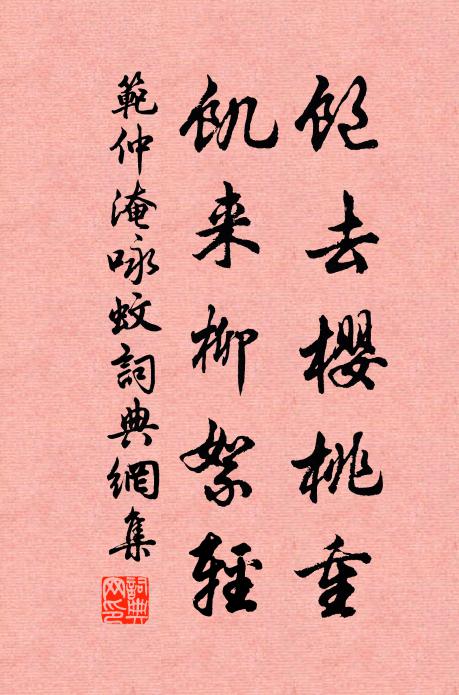 飽去櫻桃重
飢来柳絮輕
範仲淹咏蚊詞典網集
詞典網印